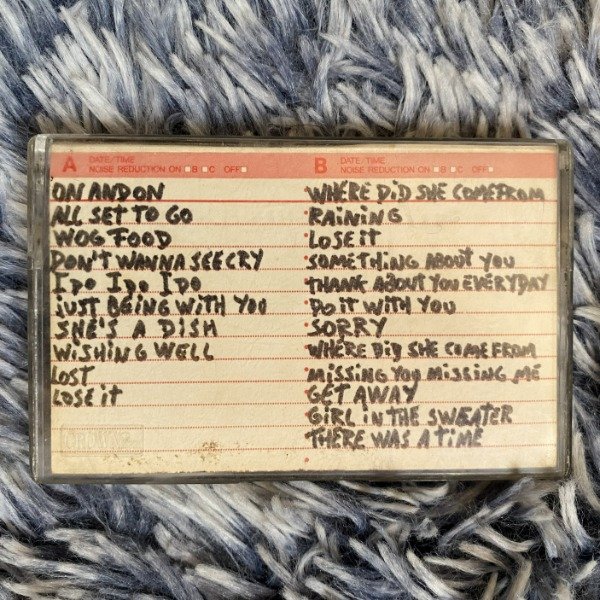 A DATE/TIME
NOISE REDUCTION ON B C OFF
ON AND ON
ALL SET TO GO
WOG FOOD
DON'T WANNA SEE CRY
I DO I DO I DO
JUST BEING WITH YOU
SHE'S A DISH
WISHING WELL
LOST
LOSE IT
B DATE/TIME
NOISE REDUCTION ON B C OFF
WHERE DID SHE COME FROM
RAINING
LOSE IT
SOMETHING ABOUT YOU
THANK ABOUT YOU EVERYDAY
DO IT WITH YOU
SORRY
WHERE DID SHE COME FROM
MISSING YOU MISSING ME
GET AWAY
GIRL IN THE SWEATER
THERE WAS A TIME